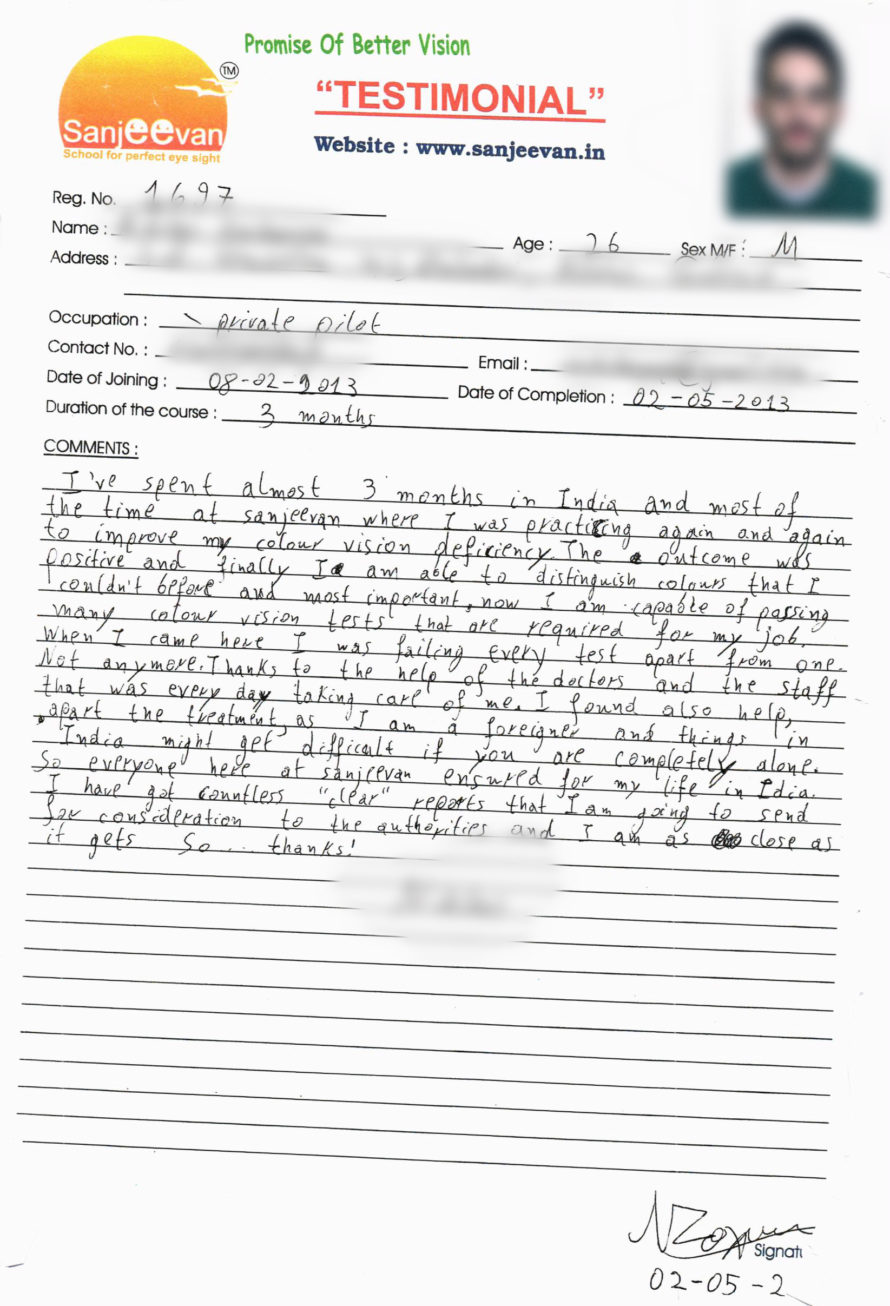 Promise Of Better Vision
TM
"TESTIMONIAL"
Sanjeevan
School for perfect eye sight
Website : www.sanjeevan.in
Reg. No. 1697
Name :
Age : 26 Sex M/F : M
Address :
Occupation : private pilot
Contact No. :
Email :
Date of Joining : 08-02-2013
Date of Completion : 02-05-2013
Duration of the course : 3 months
COMMENTS :
I've spent almost 3 months in India and most of
the time at sanjeevan where I was practicing again and again
to improve my colour vision deficiency. The outcome was
positive and finally I am able to distinguish colours that I
couldn't before and most important, now I am capable of passing
many colour vision tests that are required for my job.
When I came here I was failing every test apart from one.
Not anymore. Thanks to the help of the doctors and the staff
that was every day taking care of me. I found also help,
apart the treatment, as I am a foreigner and things in
India might get difficult if you are completely alone.
So everyone here at sanjeevan ensured for my life in Idia.
I have got countless "clear" reports that I am going to send
for consideration to the authorities and I am as close as
it gets So... thanks!
Signatu
02-05-2